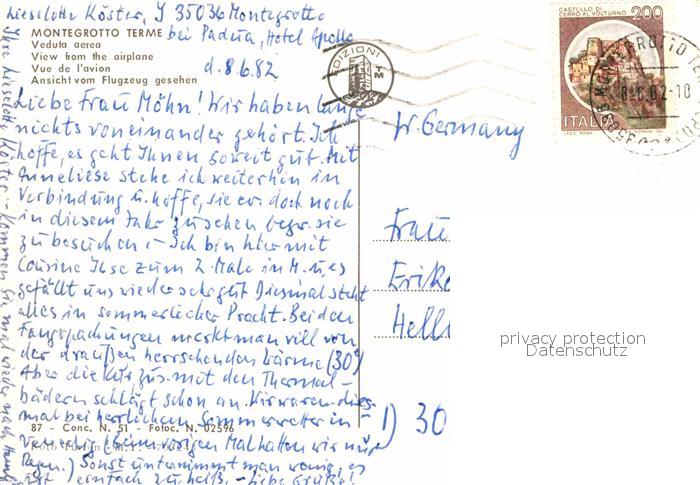 Lieselotte Köster, I 35036 Montegrotto
bei Padua, Hotel Apollo
d. 8.6.82
MONTEGROTTO TERME
Veduta aerea
View from the airplane
Vue de l'avion
Ansicht vom Flugzeug gesehen
Liebe Frau Möhn! Wir haben lange
nichts voneinander gehört. Ich
hoffe, es geht Ihnen soweit gut. Mit
Anneliese stehe ich weiterhin in
Verbindung u. hoffe, sie ev. doch noch
in diesem Jahr zu sehen bezw. sie
zu besuchen. – Ich bin hier mit
Cousine Ilse zum 2. Male in M. u. es
gefällt uns wieder sehr gut. Diesmal steht
alles in sommerlicher Pracht. Bei den
Fangopackungen merkt man viel von
der draußen herrschenden Wärme (30°)
Aber die Kur zus. mit den Thermal-
bädern schlägt schon an. Wir waren dies-
mal bei herrlichem Sommerwetter in
Venedig (beim vorigen Mal hatten wir nur
Regen.) Sonst unternimmt man wenig, es
ist einfach zu heiß. – Liebe Grüße!
Ihre Lieselotte Köster. Kommen Sie mal wieder nach
87 - Conc. N. 51 - Fotoc. N. 02596
EDIZIONI
T M
CASTELLO DI
CERRO AL VOLTURNO
200
ITALIA
W. Germany
Frau
Erik
Hell
1) 30
privacy protection
Datenschutz